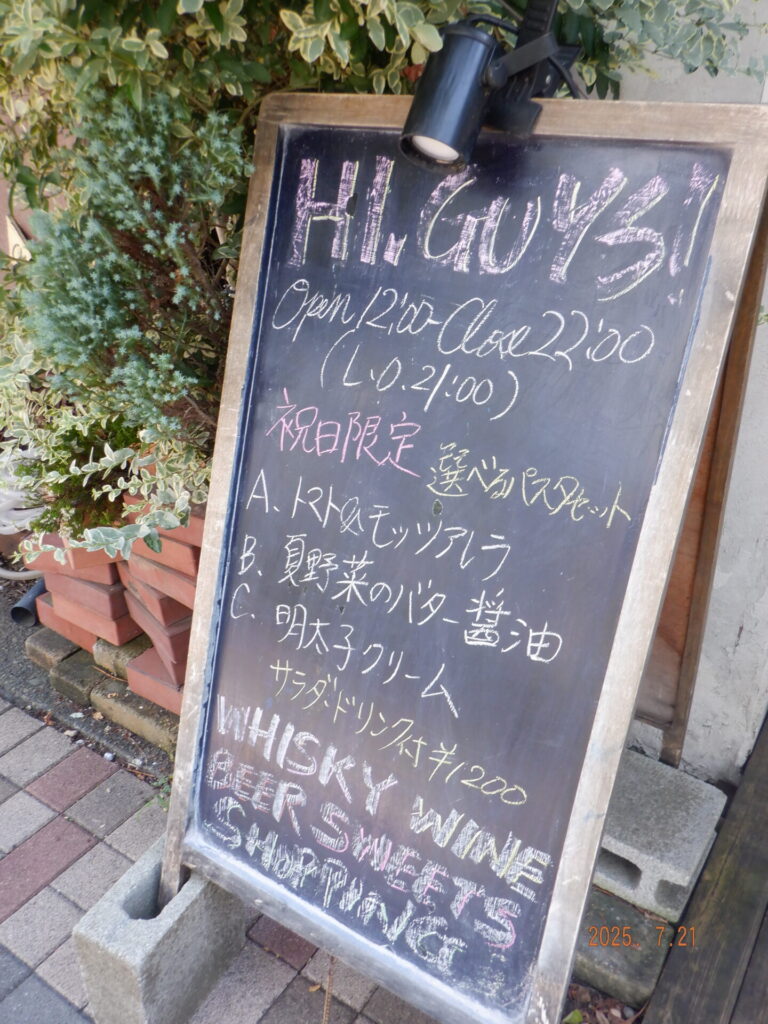 HI. GUYS!
Open 12:00-Close 22:00
(L.O.21:00)
祝日限定 選べるパスタセット
A. トマト&モッツアレラ
B. 夏野菜のバター醤油
C. 明太子クリーム
サラダ・ドリンク付 ¥1200
WHISKY WINE
BEER SWEETS
SHOPPING
2025. 7.21